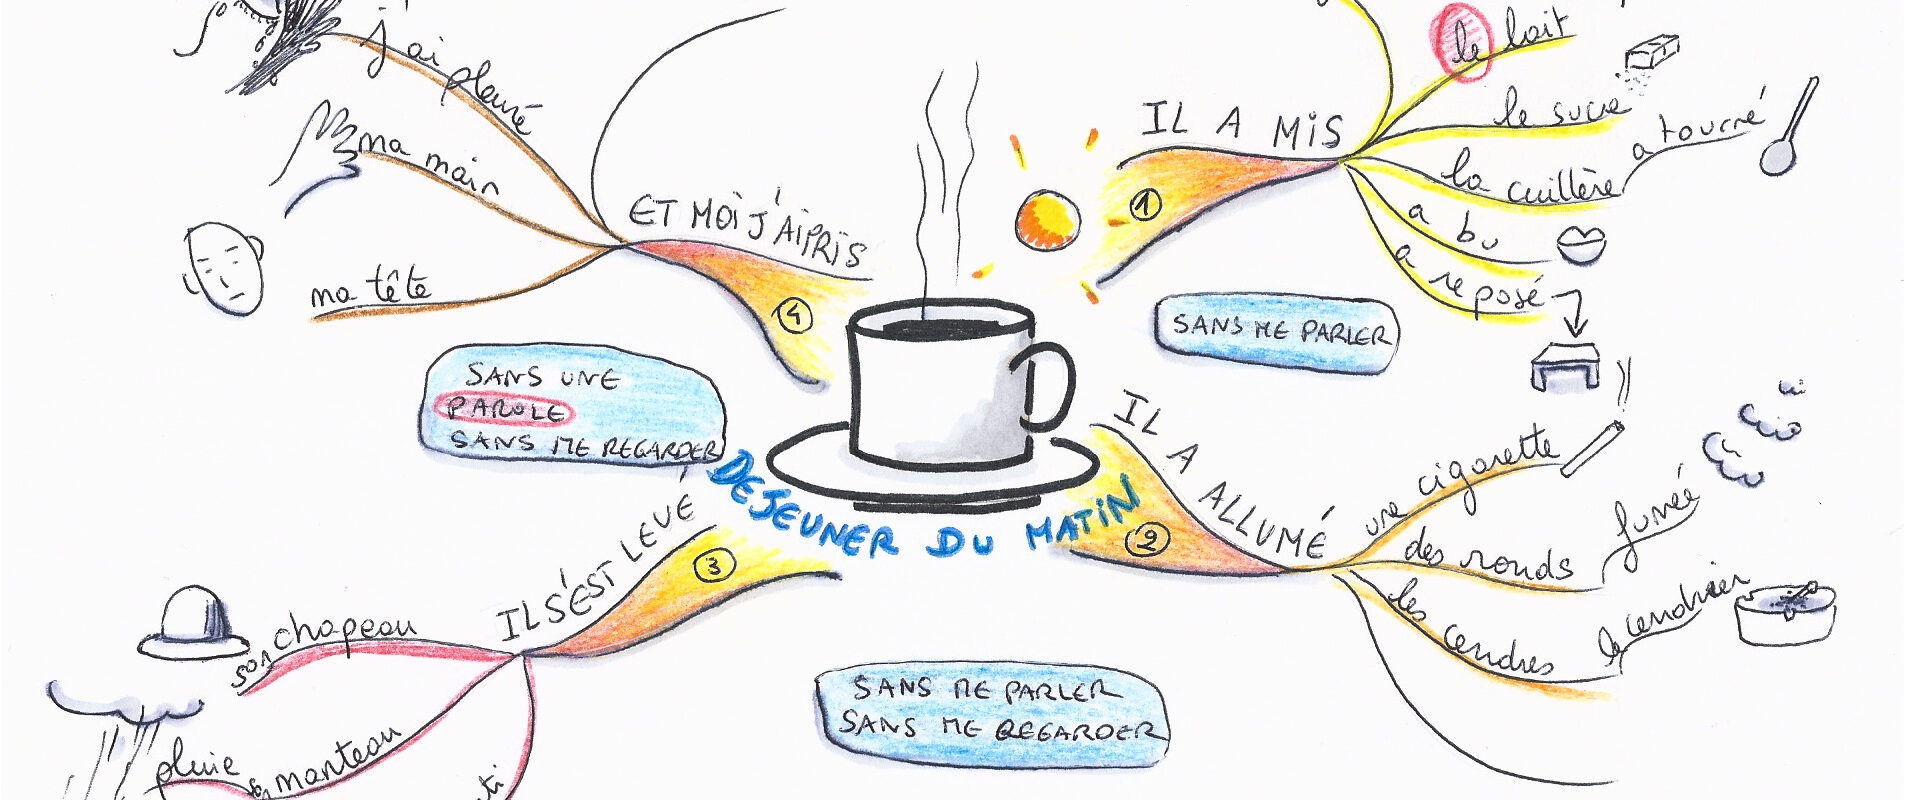 DEJEUNER DU MATIN
1
IL A MIS
le lait
le sucre
la cuillère
a tourné
a bu
a reposé
SANS ME PARLER
2
IL A ALLUMÉ
une cigarette
des ronds
fumée
les cendres
le cendrier
SANS ME PARLER
SANS ME REGARDER
3
IL S'EST LEVÉ
son chapeau
manteau
pluie
SANS UNE
PAROLE
SANS ME REGARDER
4
ET MOI J'AI PRIS
ma tête
ma main
j'ai pleuré